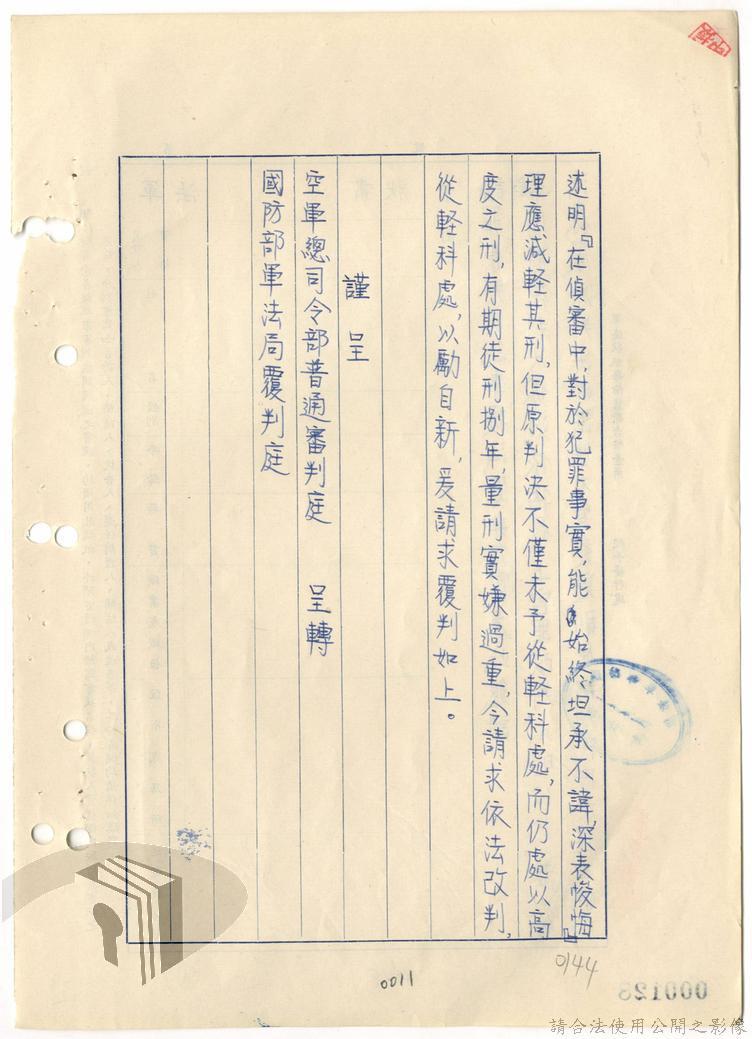 述明『在偵審中,對於犯罪事實,能始終坦承不諱,深表悛悔』
理應減輕其刑,但原判決不僅未予從輕科處,而仍處以高
度之刑,有期徒刑捌年,量刑實嫌過重,今請求依法改判,
從輕科處,以勵自新,爰請求覆判如上。
謹呈
空軍總司令部普通審判庭 呈轉
國防部軍法局覆判庭
0144
0011
000128
請合法使用公開之影像